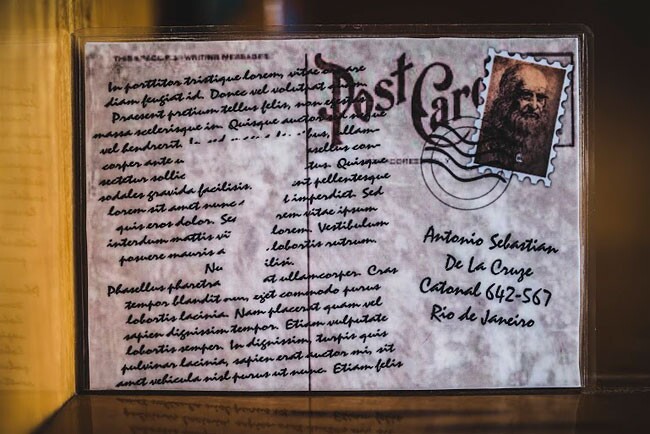 THIS SPACE FOR WRITING MESSAGES
Post Card
In porttitor tristique lorem, vitae
diam feugiat id. Donec vel volutpat
Praesent pretium tellus felis, non
massa scelerisque in. Quisque auctor
vel hendrerit.
corper ante
sectetur sollic
sodales gravida facilisis.
lorem sit amet nunc
quis eros dolor. Sed
interdum mattis vi
posuere mauris a
bus, ullam-
asellus con-
tus. Quisque
nt pellentesque
t imperdict. Sed
rem vitae ipsum
lorem. Vestibulum
lobortis rutrum.
ilisi.
Nu
at ullamcorper. Cras
Phasellus pharetra
tempor blandit nun, eget commodo purus
lobortis lacinia. Nam placerat quam vel
sapien dignissim tempor. Etiam vulputate
lobortis semper. In dignissim, turpis quis
pulvinar lacinia, sapien erat auctor mi, sit
amet vehicula nisl purus ut nunc. Etiam felis
Antonio Sebastian
De La Cruze
Catonal 642-567
Rio de Janeiro